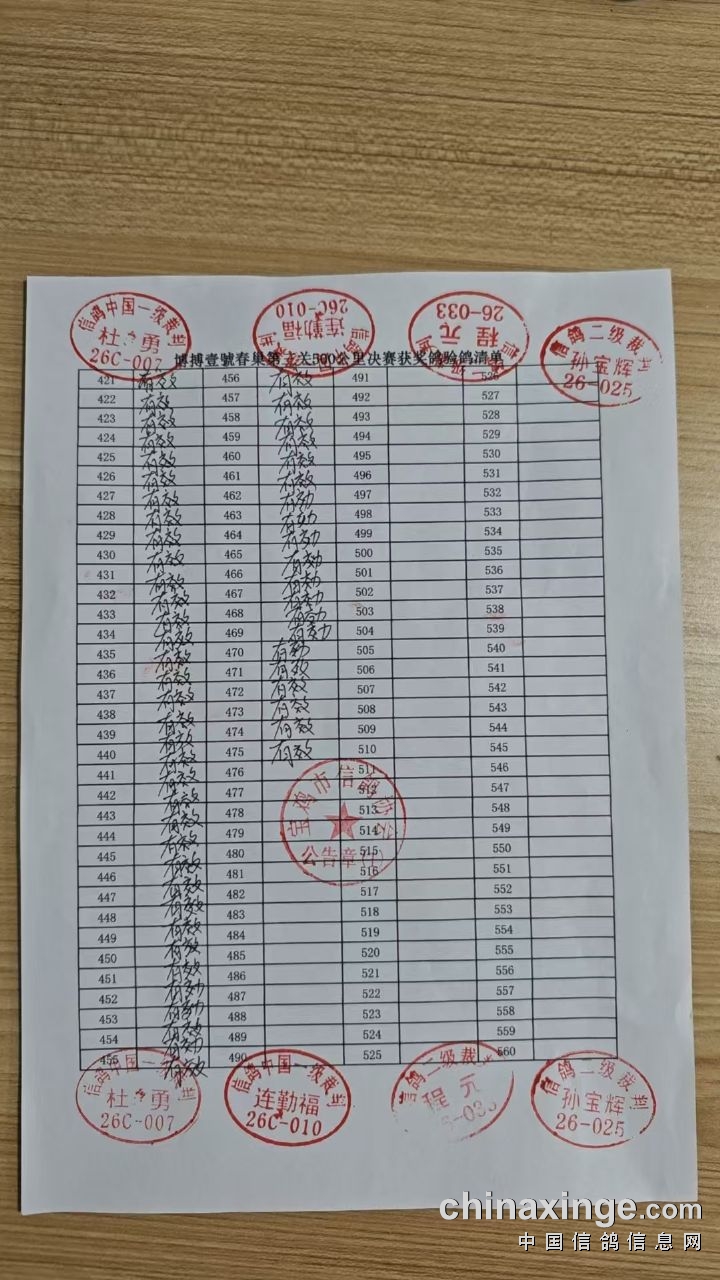 信鸽中国一级裁判
杜 勇
26C-007
信鸽中国一级裁判
连勤福
26C-010
程元
26-033
信鸽二级裁判
孙宝辉
26-025
博搏壹號春巢第 关500公里决赛获奖鸽验鸽清单
421 有效 456 有效 491 526
422 有效 457 有效 492 527
423 有效 458 有效 493 528
424 有效 459 有效 494 529
425 有效 460 有效 495 530
426 有效 461 有效 496 531
427 有效 462 有効 497 532
428 有效 463 有効 498 533
429 有效 464 有効 499 534
430 有效 465 有効 500 535
431 有效 466 有効 501 536
432 有效 467 有効 502 537
433 有效 468 有効 503 538
434 有效 469 有効 504 539
435 有效 470 有効 505 540
436 有效 471 有效 506 541
437 有效 472 有效 507 542
438 有效 473 有效 508 543
439 有效 474 有效 509 544
440 有效 475 有效 510 545
441 有效 476 511 546
442 有效 477 512 547
443 有效 478 513 548
444 有效 479 514 549
445 有效 480 515 550
446 有效 481 516 551
447 有效 482 517 552
448 有效 483 518 553
449 有效 484 519 554
450 有效 485 520 555
451 有效 486 521 556
452 有効 487 522 557
453 有効 488 523 558
454 有效 489 524 559
455 有效 490 525 560
宝鸡市信鸽协会
公告章(1)
信鸽中国一级裁判
杜 勇
26C-007
信鸽中国一级裁判
连勤福
26C-010
信鸽二级裁
程元
6-033
信鸽二级裁判
孙宝辉
26-025
chinaxinge.com
中国信鸽信息网